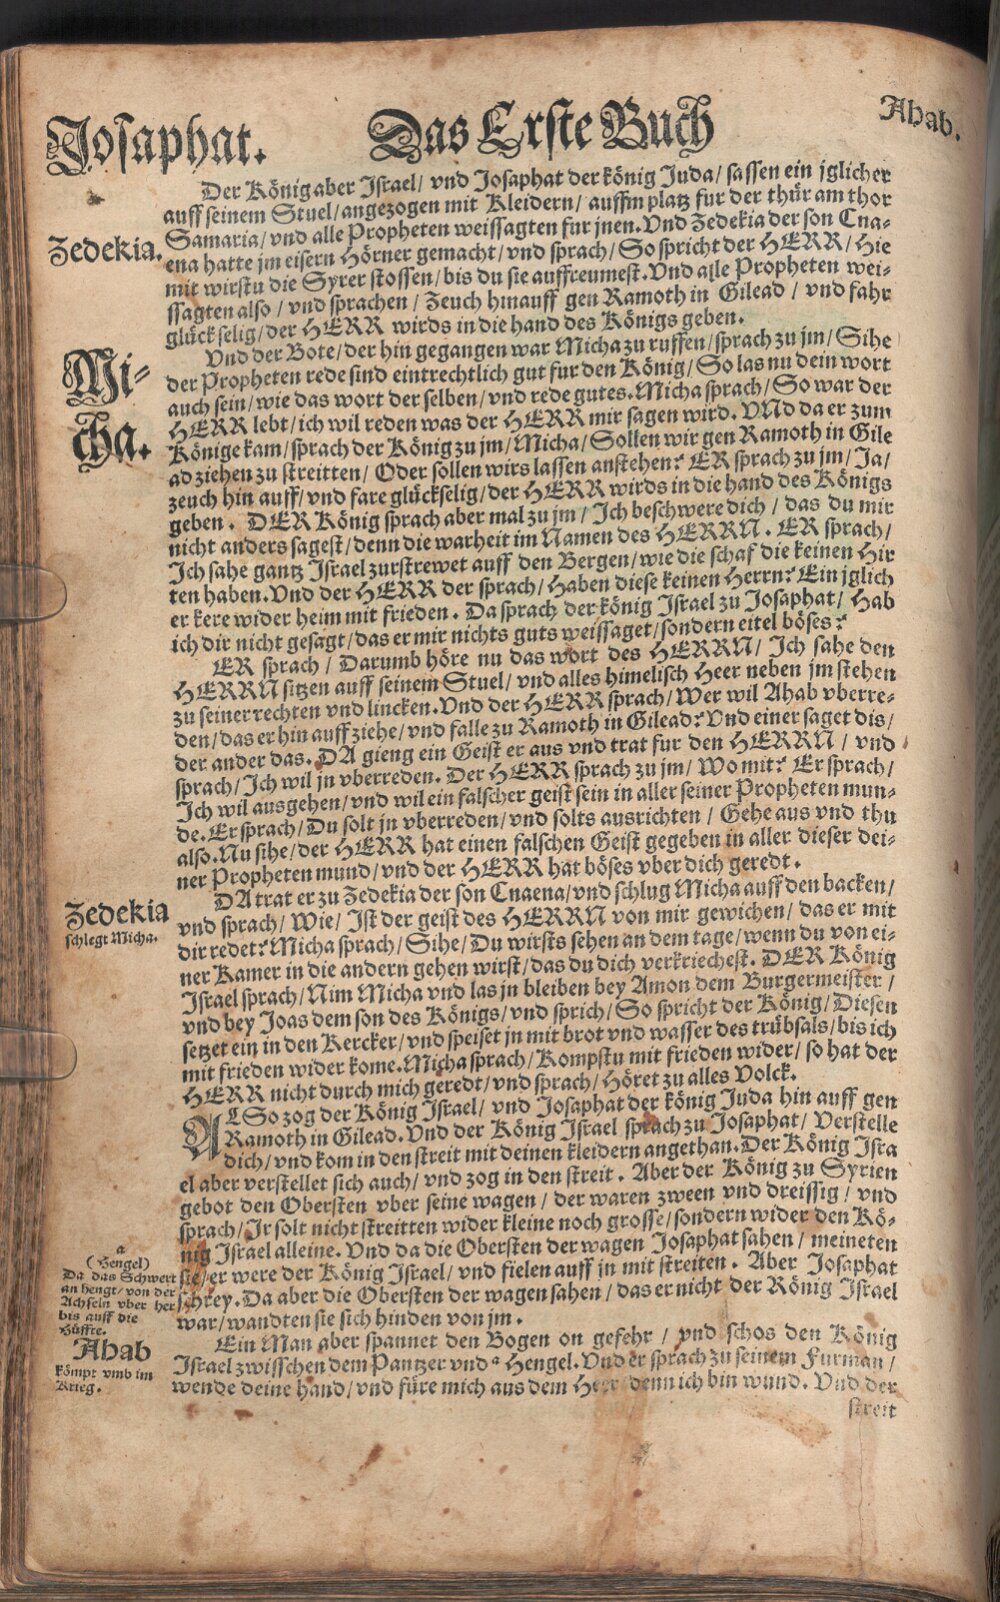 Josaphat.
Das Erste Buch
Ahab.
Der König aber Israel/ vnd Josaphat der könig Juda/ sassen ein jglicher
auff seinem Stuel/ angezogen mit Kleidern/ auffm platz fur der thür am thor
Samaria/ vnd alle Propheten weissagten fur jnen. Vnd Zedekia der son Cna-
Zedekia.
ena hatte jm eisern Hörner gemacht/ vnd sprach/ So spricht der HERR/ Hie
mit wirstu die Syrer stossen/ bis du sie auffreumest. Vnd alle Propheten wei-
ssagten also/ vnd sprachen/ Zeuch hinauff gen Ramoth in Gilead/ vnd fahr
glückselig/ der HERR wirds in die hand des Königs geben.
Mi-
cha.
Vnd der Bote/ der hin gegangen war Micha zu ruffen/ sprach zu jm/ Sihe
der Propheten rede sind eintrechtlich gut fur den König/ So las nu dein wort
auch sein/ wie das wort der selben/ vnd rede gutes. Micha sprach/ So war der
HERR lebt/ ich wil reden was der HERR mir sagen wird. VNd da er zum
Könige kam/ sprach der König zu jm/ Micha/ Sollen wir gen Ramoth in Gile
ad ziehen zu streitten/ Oder sollen wirs lassen anstehen? ER sprach zu jm/ Ja/
zeuch hin auff/ vnd fare glückselig/ der HERR wirds in die hand des Königs
geben. DER König sprach aber mal zu jm/ Ich beschwere dich/ das du mir
nicht anders sagest/ denn die warheit im Namen des HERRN. ER sprach/
Ich sahe gantz Israel zurstrewet auff den Bergen/ wie die schaf die keinen Hir
ten haben. Vnd der HERR der sprach/ Haben diese keinen Herrn? Ein jglich
er kere wider heim mit frieden. Da sprach der könig Israel zu Josaphat/ Hab
ich dir nicht gesagt/ das er mir nichts guts weissaget/ sondern eitel böses?
ER sprach/ Darumb höre nu das wort des HERRN/ Ich sahe den
HERRN sitzen auff seinem Stuel/ vnd alles himelisch Heer neben jm stehen
zu seiner rechten vnd lincken. Vnd der HERR sprach/ Wer wil Ahab vberre-
den/ das er hin auff ziehe/ vnd falle zu Ramoth in Gilead? Vnd einer saget dis/
der ander das. DA gieng ein Geist er aus vnd trat fur den HERRN/ vnd
sprach/ Ich wil jn vberreden. Der HERR sprach zu jm/ Wo mit? Er sprach/
Ich wil ausgehen/ vnd wil ein falscher geist sein in aller seiner Propheten mun-
de. Er sprach/ Du solt jn vberreden/ vnd solts ausrichten/ Gehe aus vnd thu
also. Nu sihe/ der HERR hat einen falschen Geist gegeben in aller dieser dei-
ner Propheten mund/ vnd der HERR hat böses vber dich geredt.
Zedekia
schlegt Micha.
DA trat er zu Zedekia der son Cnaena/ vnd schlug Micha auff den backen/
vnd sprach/ Wie/ Ist der geist des HERRN von mir gewichen/ das er mit
dir redet? Micha sprach/ Sihe/ Du wirsts sehen an dem tage/ wenn du von ei-
ner Kamer in die andern gehen wirst/ das du dich verkriechest. DER König
Israel sprach/ Nim Micha vnd las jn bleiben bey Amon dem Burgermeister/
vnd bey Joas dem son des Königs/ vnd sprich/ So spricht der König/ Diesen
setzet ein in den Kercker/ vnd speiset jn mit brot vnd wasser des trübsals/ bis ich
mit frieden wider kome. Micha sprach/ Kompstu mit frieden wider/ so hat der
HERR nicht durch mich geredt/ vnd sprach/ Höret zu alles Volck.
ALSo zog der König Israel/ vnd Josaphat der könig Juda hin auff gen
Ramoth in Gilead. Vnd der König Israel sprach zu Josaphat/ Verstelle
dich/ vnd kom in den streit mit deinen kleidern angethan. Der König Isra
el aber verstellet sich auch/ vnd zog in den streit. Aber der König zu Syrien
gebot den Obersten vber seine wagen/ der waren zween vnd dreissig/ vnd
sprach/ Ir solt nicht streitten wider kleine noch grosse/ sondern wider den Kö-
nig Israel alleine. Vnd da die Obersten der wagen Josaphat sahen/ meineten
sie/ er were der König Israel/ vnd fielen auff jn mit streiten. Aber Josaphat
schrey. Da aber die Obersten der wagen sahen/ das er nicht der König Israel
war/ wandten sie sich hinden von jm.
a
(Hengel)
Da das Schwert
an hengt/ von der
Achseln vber her
bis auff die
Hüffte.
Ahab
kömpt vmb im
Krieg.
Ein Man aber spannet den Bogen on gefehr/ vnd schos den König
Israel zwisschen dem Pantzer vnd a Hengel. Vnd er sprach zu seinem Furman/
wende deine hand/ vnd füre mich aus dem Heer denn ich bin wund. Vnd der
streit